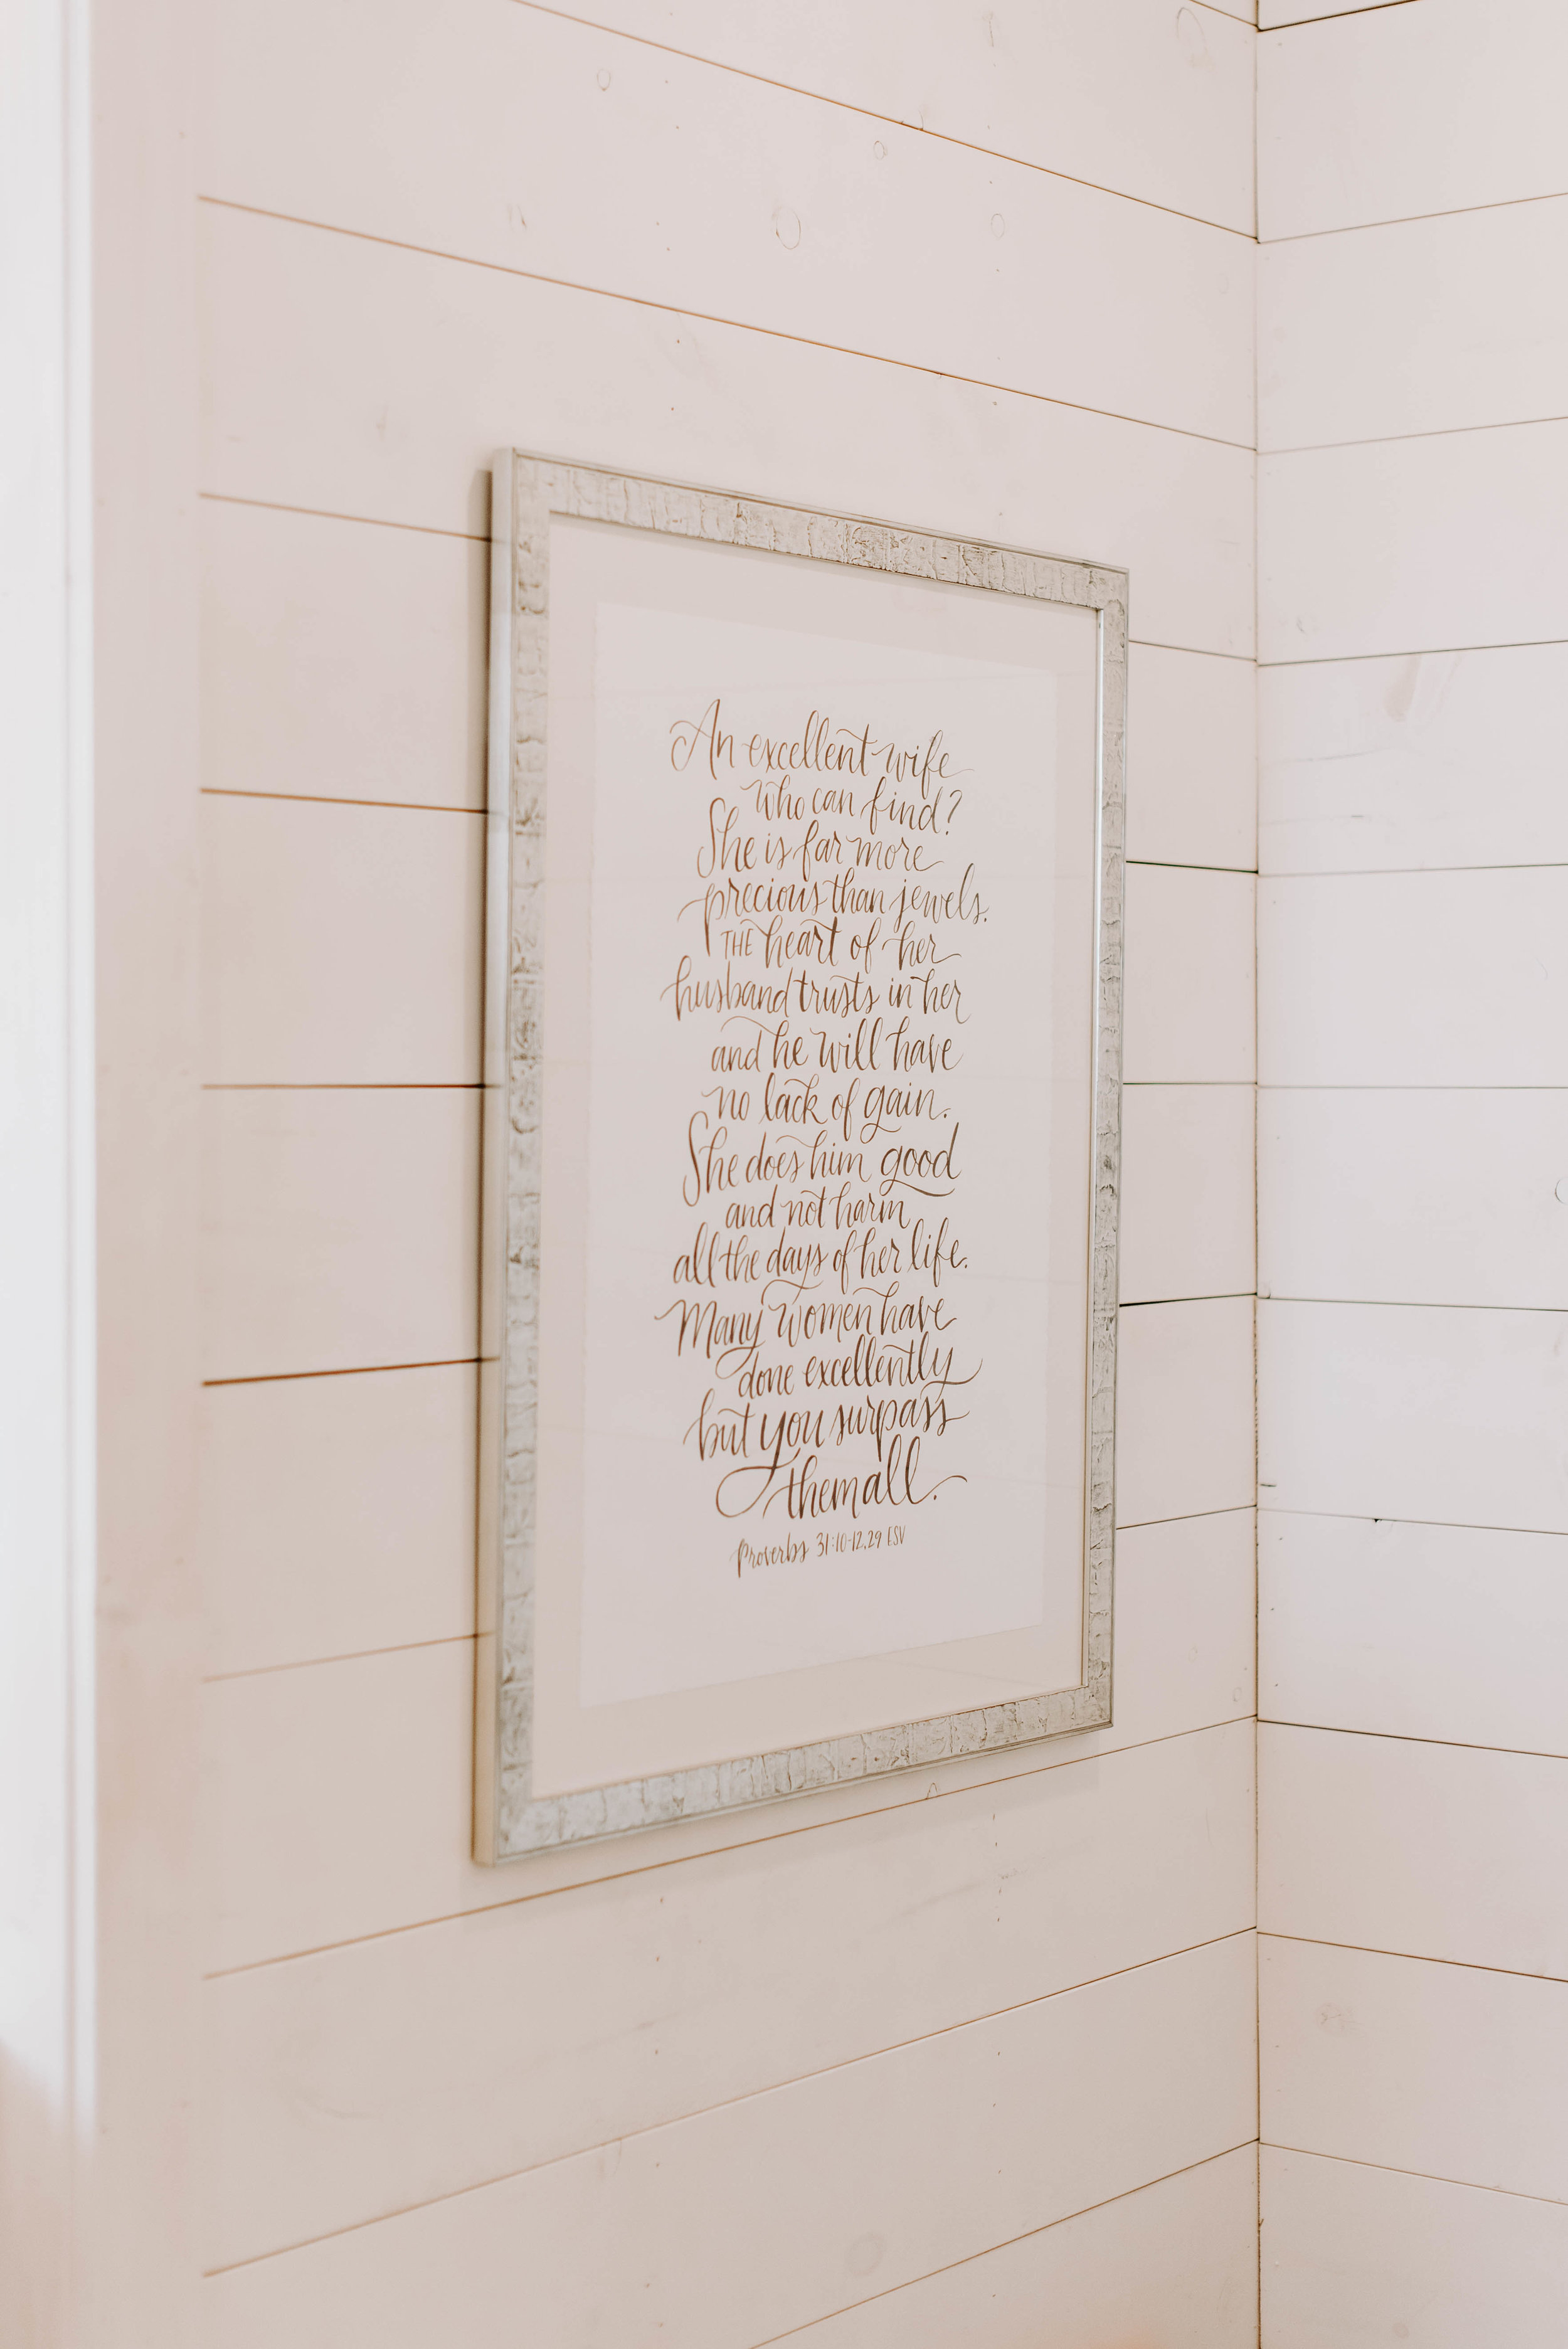 An excellent wife
who can find?
She is far more
precious than jewels.
THE heart of her
husband trusts in her
and he will have
no lack of gain.
She does him good
and not harm
all the days of her life.
Many women have
done excellently
but you surpass
them all.
Proverbs 31:10-12,29 ESV